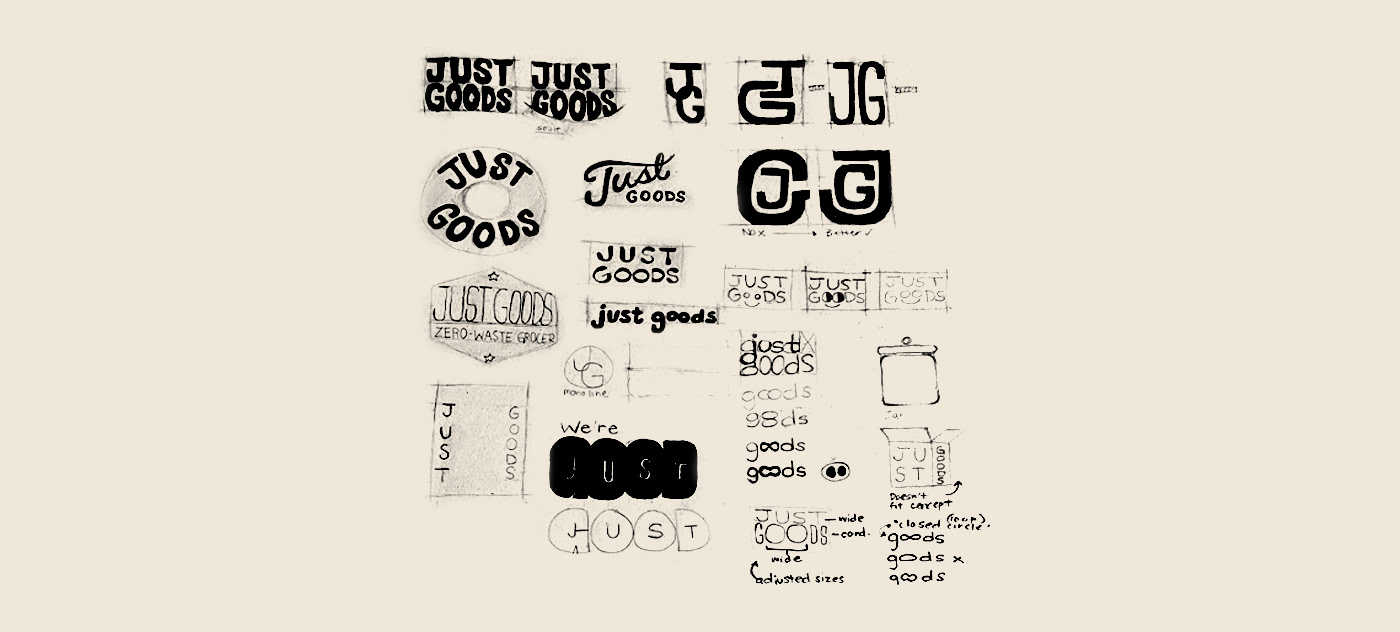 JUST
GOODS
JUST
GOODS
JG
GJ
JG
JUST
GOODS
Just
GOODS
GJ
JG
No x
Better ✓
JUST
GOODS
JUST GOODS
ZERO-WASTE GROCER
just goods
JUST
GOODS
JUST
GOODS
JUST
GOODS
JG
monoline
just x
goods
goods
g8ds
goods
goods
Jar
JUST
GOODS
We're
JUST
JUST
JUST
GOODS
JU
ST
GOODS
Doesn't
fit concept
JUST
GOODS
wide
cond.
wide
adjusted sizes
closed
circle.
goods
goods x
goods